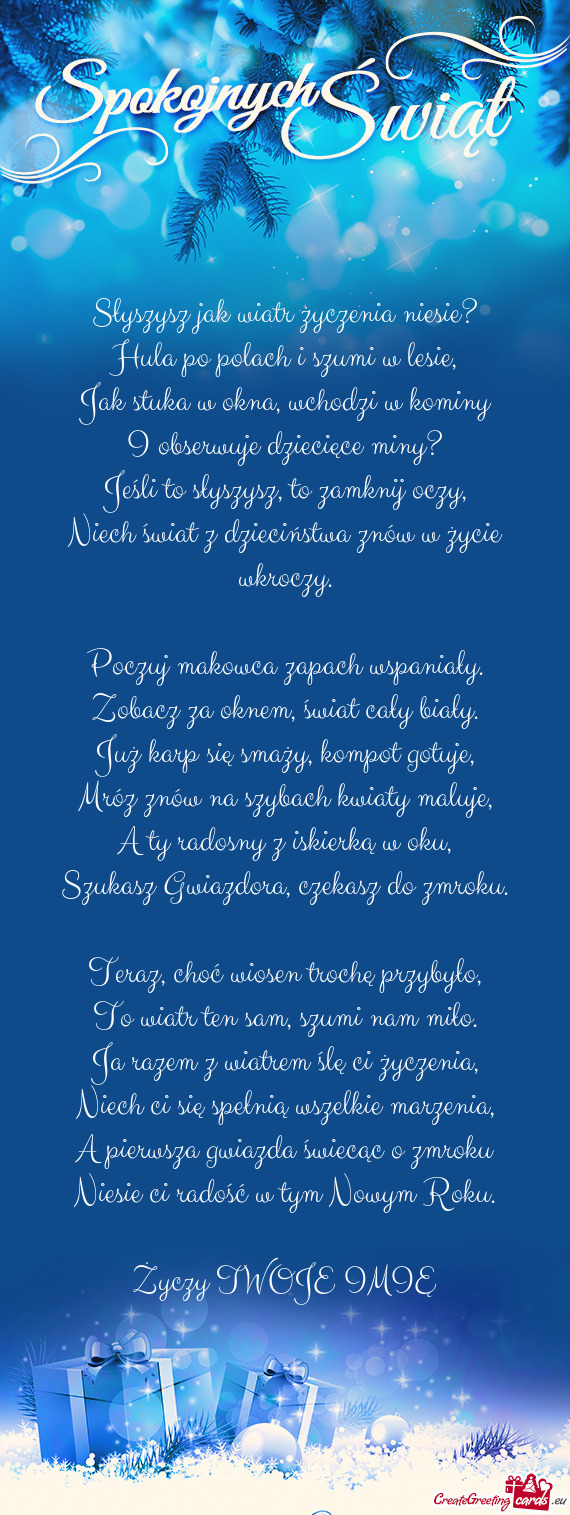 Spokojnych Świąt
Słyszysz jak wiatr życzenia niesie?
Hula po polach i szumi w lesie,
Jak stuka w okna, wchodzi w kominy
I obserwuje dziecięce miny?
Jeśli to słyszysz, to zamknij oczy,
Niech świat z dzieciństwa znów w życie
wkroczy.
Poczuj makowca zapach wspaniały.
Zobacz za oknem, świat cały biały.
Już karp się smaży, kompot gotuje,
Mróz znów na szybach kwiaty maluje,
A ty radosny z iskierką w oku,
Szukasz Gwiazdora, czekasz do zmroku.
Teraz, choć wiosen trochę przybyło,
To wiatr ten sam, szumi nam miło.
Ja razem z wiatrem ślę ci życzenia,
Niech ci się spełnią wszelkie marzenia,
A pierwsza gwiazda świecąc o zmroku
Niesie ci radość w tym Nowym Roku.
Życzy TWOJE IMIĘ
CreateGreeting cards .eu